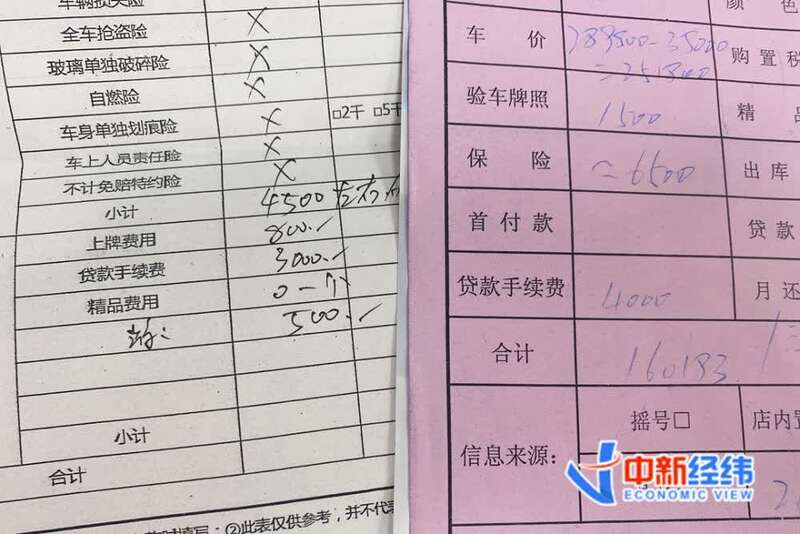 车辆损失险
全车抢盗险 X
玻璃单独破碎险 X
自燃险 X
车身单独划痕险 X □2千 □5千
车上人员责任险 X
不计免赔特约险 X
小计 4500 左右
上牌费用 800.
贷款手续费 3000.
精品费用 0一个
500.
小计
合计
填写:②此表仅供参考,并不代表
颜色
车价 289500-35000 购置税
≈251800
验车牌照 1500 精品
保险 ≈6500 出库
首付款 贷款
贷款手续费 4000 月还
合计 160193
信息来源: 摇号□ 店内置
中新经纬
ECONOMIC VIEW